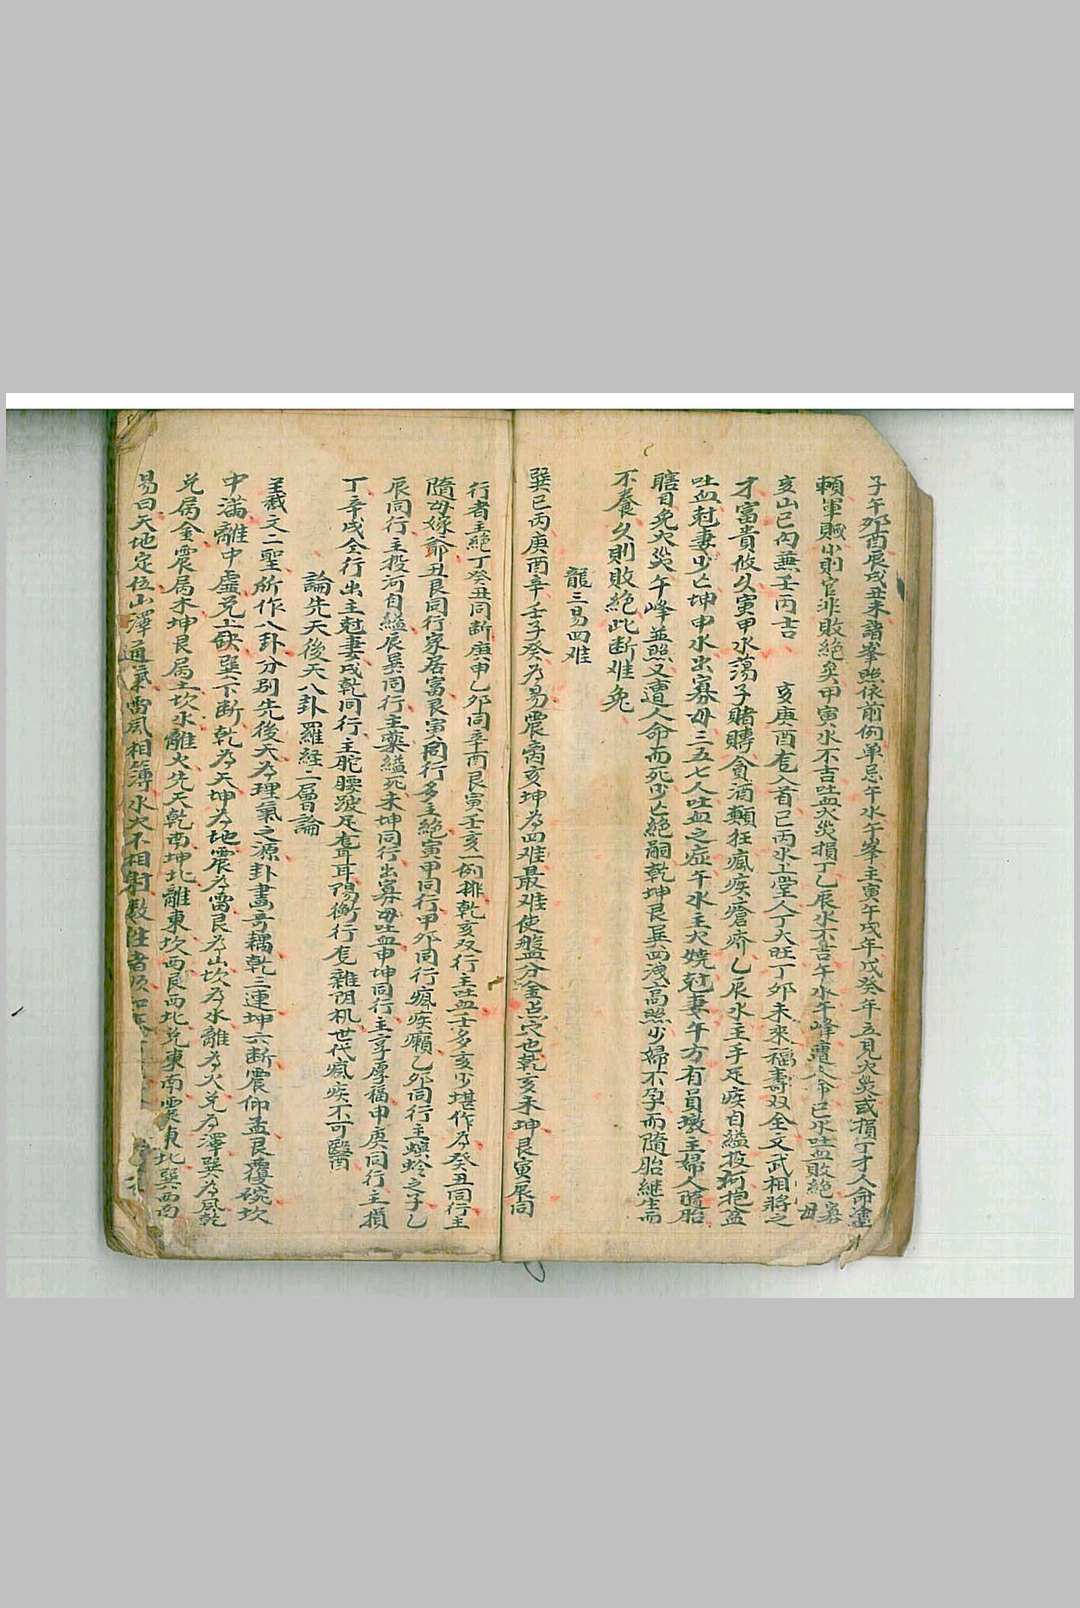 子午卯酉辰戌丑未諸峯照依前例单忌午水午峯主寅午戌年戊癸年立見火災或損丁才人命塗
賴軍賊小則官非敗絕矣甲寅水不吉吐血火災損丁乙辰水不吉午水午峰遭人命巳水吐血敗絕寡母
亥山巳丙兼壬丙吉 亥庚酉尨入首巳丙水上堂人丁大旺丁卯未來福壽双全文武相將之
才富貴攸久寅甲水蕩子賭賻貪酒顛狂瘋疾瘡疥乙辰水主手足疾自縊投河抱盆
吐血尅妻少亡坤申水出寡母三五七人吐血之症午水主火燒尅妻午方有員墩主婦人隨胎
瞎目免火災午峰並照又遭人命而死少亡絕嗣乾坤艮巽四洩高照少婦不孕而隨胎継生而
不養久則敗絕此断难免
龍三易四难
巽巳丙庚酉辛壬子癸為易震离亥坤為四难最难使盤分金点穴也乾亥未坤艮寅辰同
行者主絕丁癸丑同断庚申乙卯同辛酉艮寅壬亥一例排乾亥双行主吐血壬多亥少堪作為癸丑同行主
隨母嫁爺丑艮同行家居富艮寅同行多主絕寅甲同行甲卯同行瘋疾癩乙卯同行主螟蛉之子乙
辰同行主投河自縊辰巽同行主藥縊死未坤同行出寡母吐血申坤同行主享厚福申庚同行主損
丁辛戌仝行出主尅妻戌乾同行主駝腰跛足尨耳耳陽衡行尨雜阴机世代瘋疾不可醫
論先天後天八卦羅経二層論
羲文二聖所作八卦分别先後天為理氣之源卦畫竒耦乾三連坤六断震仰盂艮覆碗坎
中滿離中虛兌上缺巽下断乾為天坤為地震為雷艮為山坎為水離為火兌為澤巽為風乾
兌属金震属木坤艮属土坎水離火先天乾南坤北離東坎西艮西北兌東南震東北巽西西
易曰天地定位山澤通氣雷風相簿水火不相射数往者